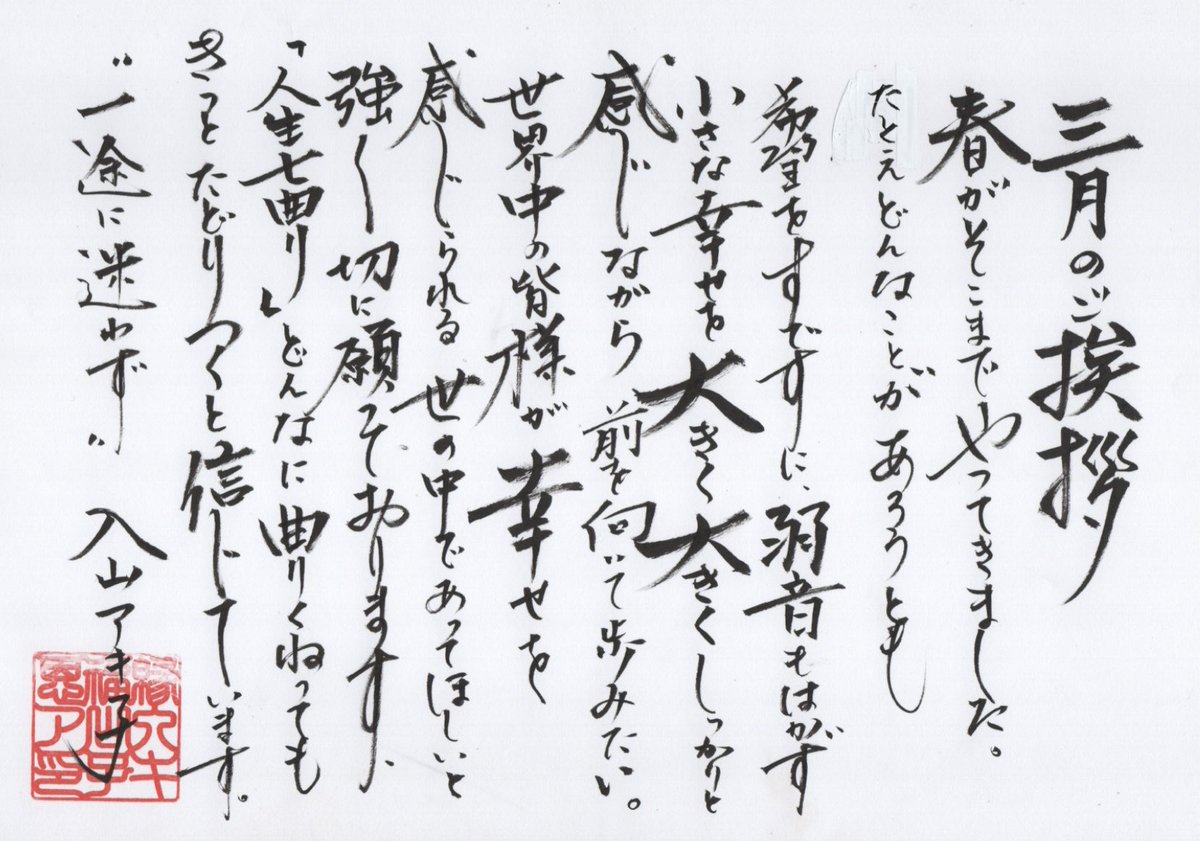 三月のご挨拶
春がそこまでやってきました。
たとえどんなことがあろうとも
希望をすてずに、弱音もはかず
小さな幸せを大きく大きくしっかりと
感じながら前を向いて歩みたい。
世界中の皆様が幸せを
感じられる世の中であってほしいと
強く切に願っております、
「人生七曲り」どんなに曲りくねっても
きっとたどりつくと信じています。
"一途に迷わず" 入山アキ子